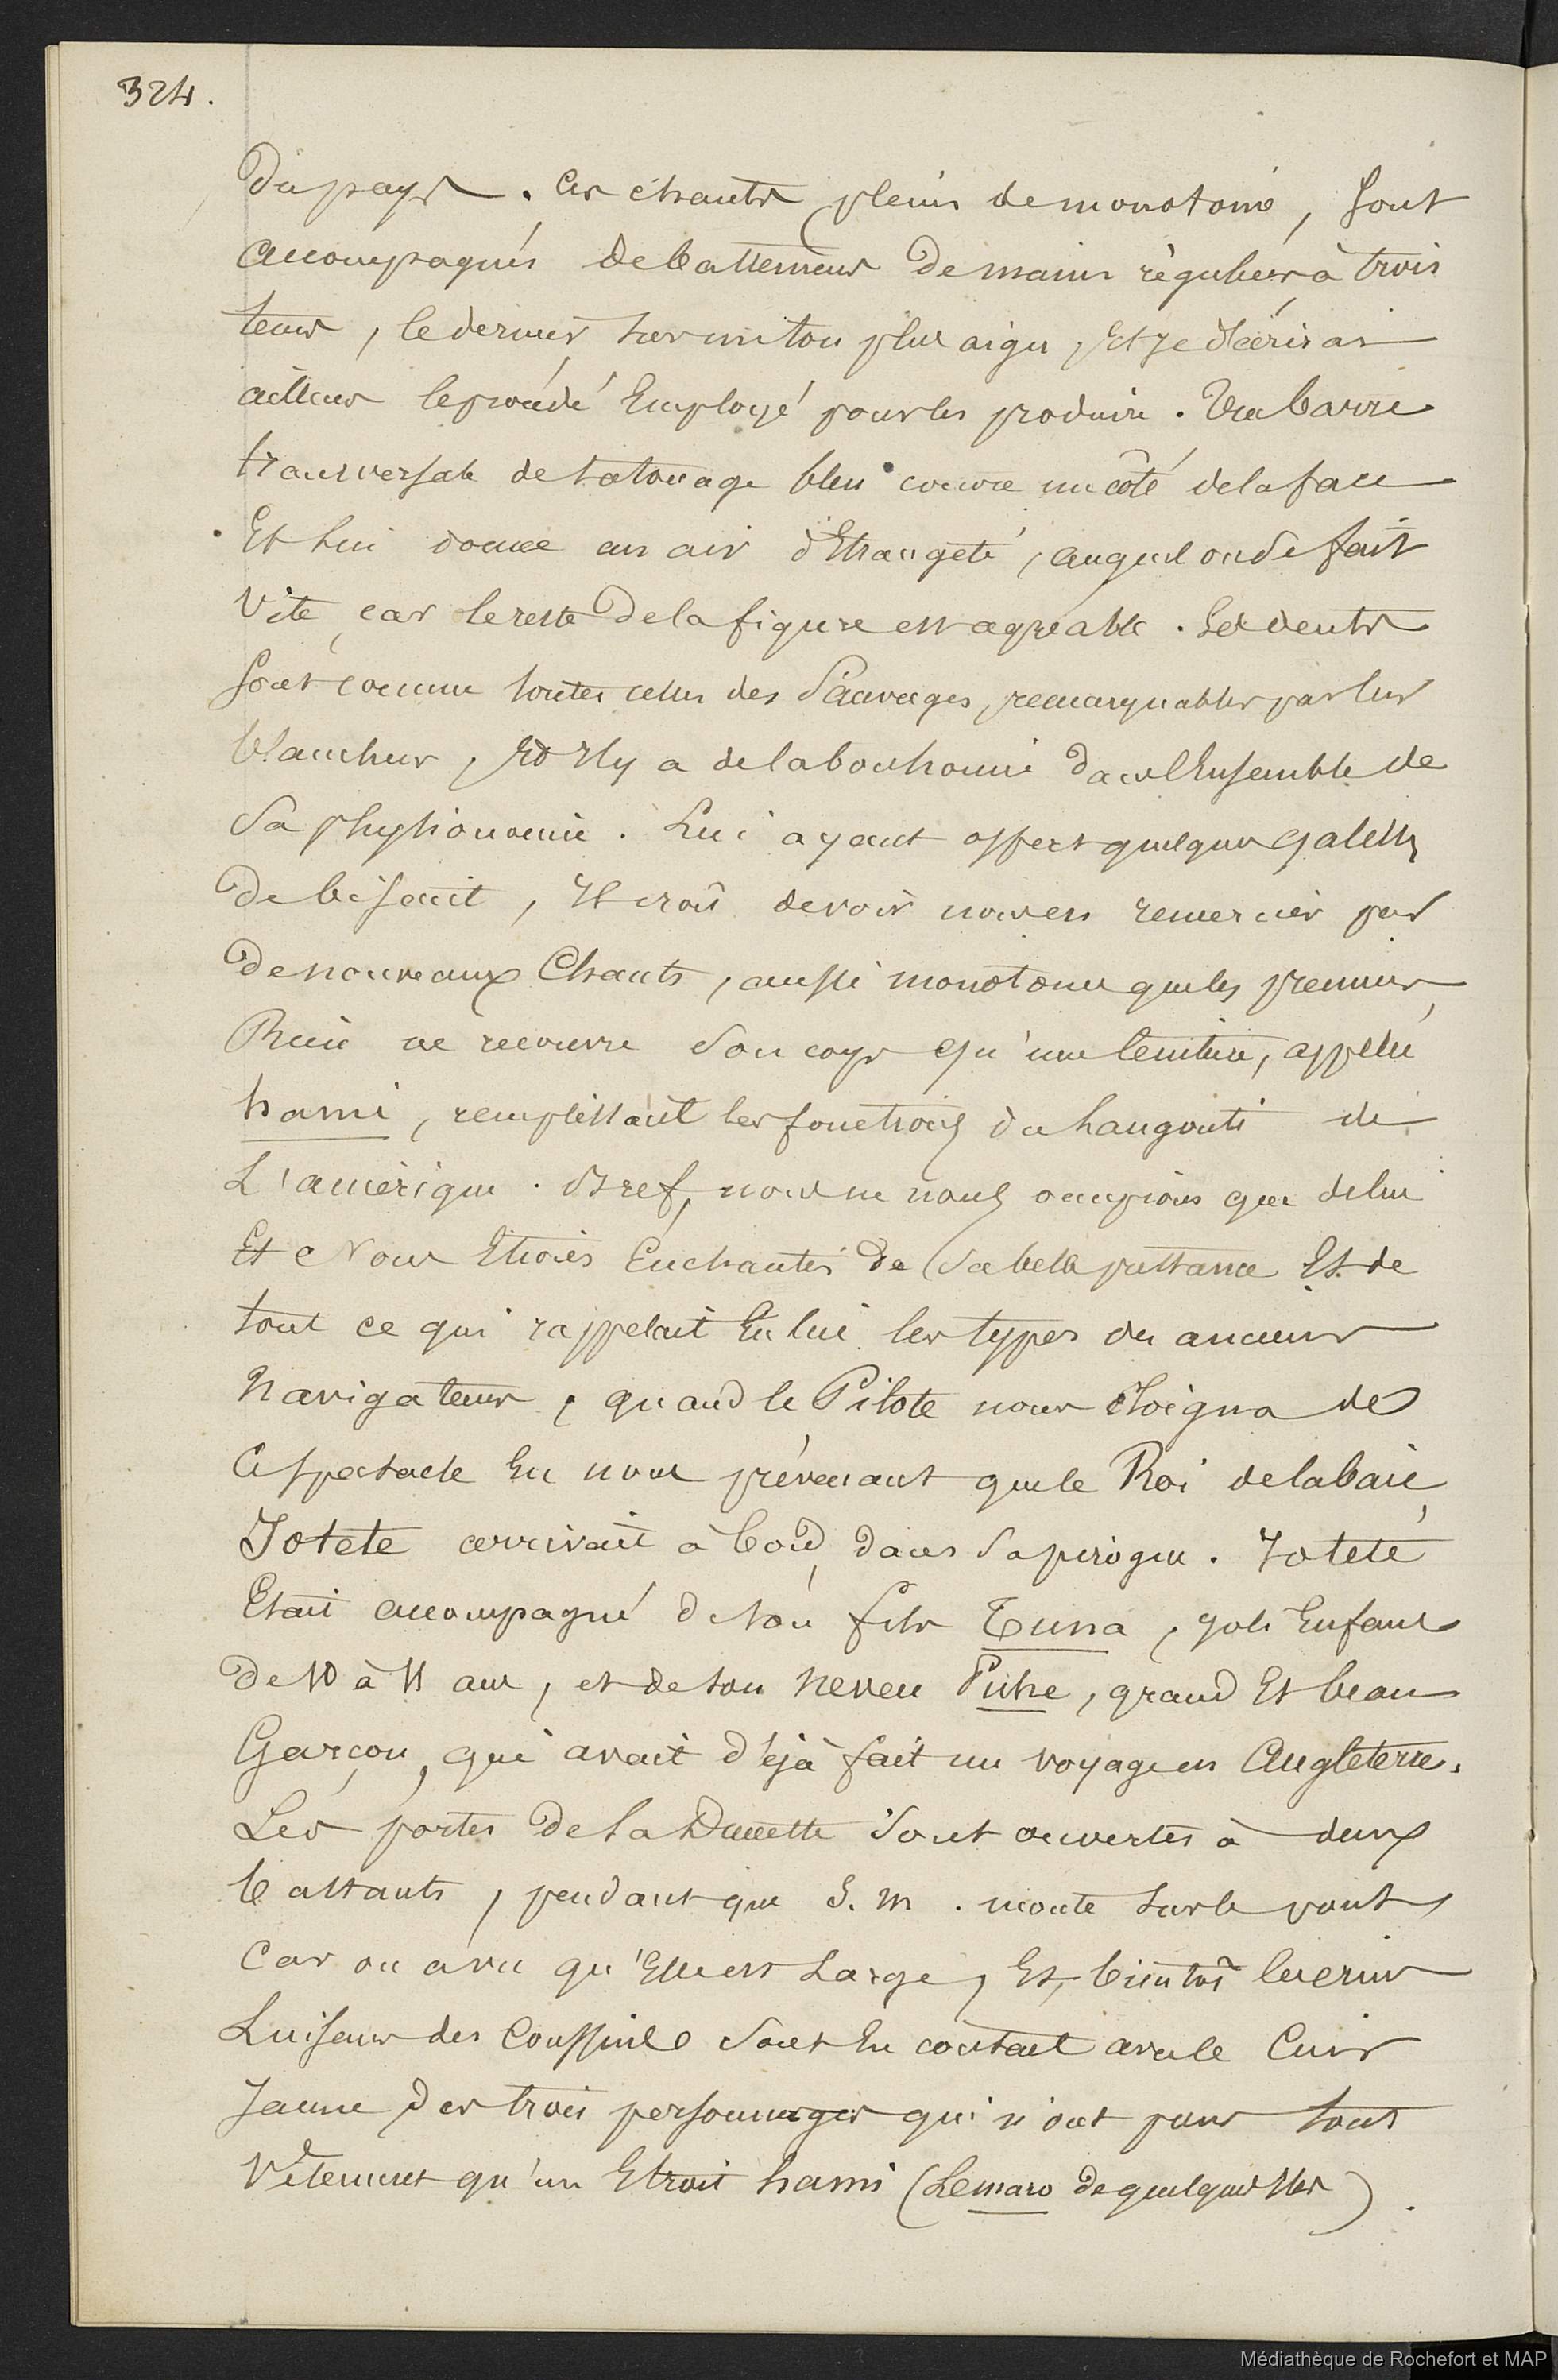 324.
du pays. Ces chants pleins de monotonie, sont
accompagnés de battemens de mains réguliers à trois
tems, le dernier sur un ton plus aigu, et je décrirai
ailleurs le procédé Employé pour les produire. Une barre
transversale de tatouage bleu couvre un côté de la face
Et lui donne un air d'Etrangeté, auquel on se fait
vite, car le reste de la figure est agréable. Ses dents
sont comme toutes celles des Sauvages, remarquables par leur
blancheur, Et Il y a de la bonhomie dans l'Ensemble de
sa physionomie. Lui ayant offert quelques galettes
de biscuit, Il croit devoir nous en remercier par
de nouveaux Chants, aussi monotones que les premiers,
Rien ne recouvre son corps qu'une ceinture, appelée
hami, remplissant les fonctions du langouti de
L'amérique. Bref, nous ne nous occupions que de lui
Et Nous Etions Enchantés de sa belle prestance Et de
tout ce qui rappelait En lui les types des anciens
Navigateurs, quand le Pilote nous Eloigna de
ce spectacle En nous prévenant que le Roi de la baie,
Iotete arrivait à bord, dans sa pirogue. Ioteté
Etait accompagné de son fils Tuna, joli Enfant
de 10 à 11 ans, et de son neveu Puhe, grand Et beau
Garçon, qui avait déjà fait un voyage en Angleterre.
Les portes de la Dunette sont ouvertes à deux
battants, pendant que S. M. monte sur le pont,
Car on a vu qu'Elle est Large, Et, bientôt le crin
Luisant des Coussins sont En contact avec le Cuir
Jaune des trois personnages qui n'ont pour tout
Vêtement qu'un Etroit hami (Le maro de quelques Iles).
Médiathèque de Rochefort et MAP